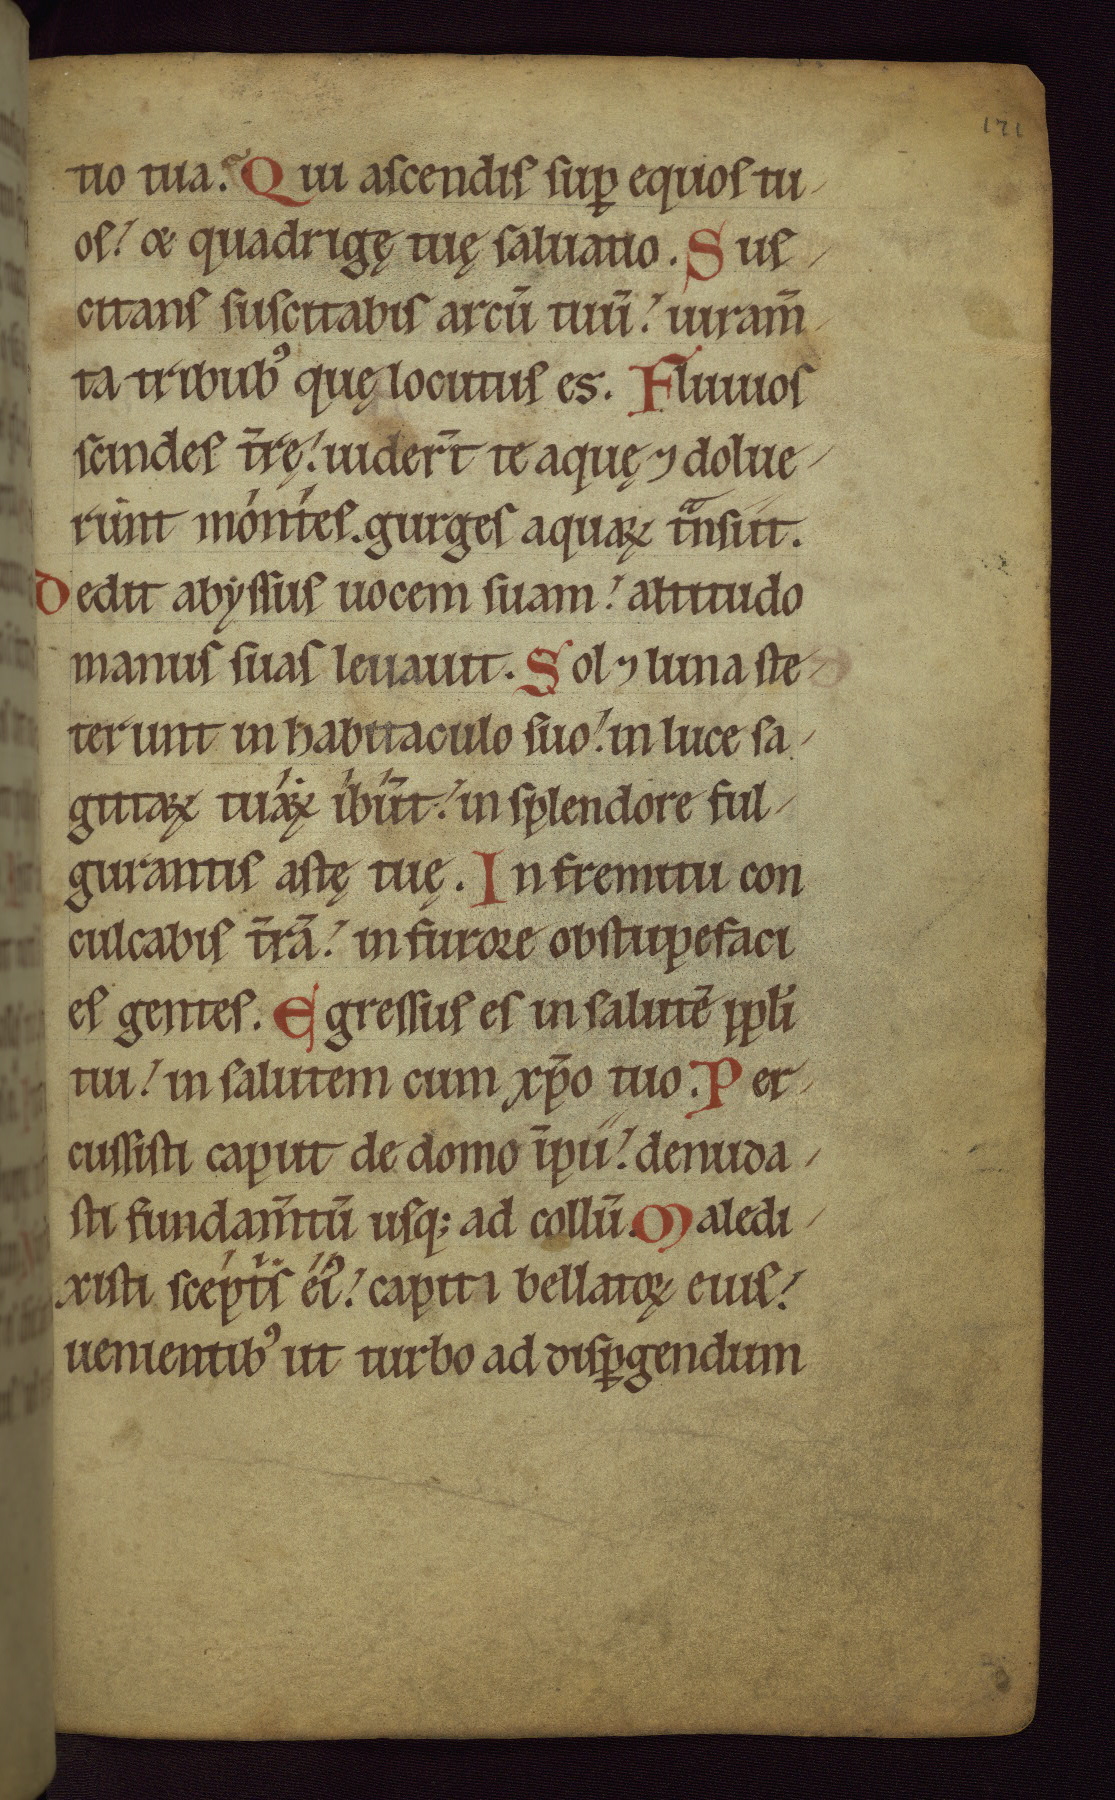 171
tio tua. Qui ascendis sup̱ equos tu-
os! & quadrigę tuę saluatio. Sus-
citans suscitabis arcū tuū! iuram̄-
ta tribubꝰ quę locutus es. Fluuios
scindes t̄rę! uider̄t te aquę ⁊ dolue-
runt montes. gurges aquaꝝ tͣnsiit.
Dedit abyssus uocem suam! altitudo
manus suas leuauit. Sol ⁊ luna ste-
terunt in habitaculo suo! in luce sa-
gittaꝝ tuaꝝ ibūt! in splendore ful-
gurantis astę tuę. In fremitu con
culcabis t̄rā! in furore obstupefaci
es gentes. Egressus es in salutē pp̱li
tui! in salutem cum xp̄o tuo. Per-
cussisti caput de domo īpii! denuda-
sti fundam̄tū usq; ad collū. Maledi-
xisti scept̄s eiꝰ! capiti bellatoꝝ eius!
uenientibꝰ ut turbo ad disꝑgendum